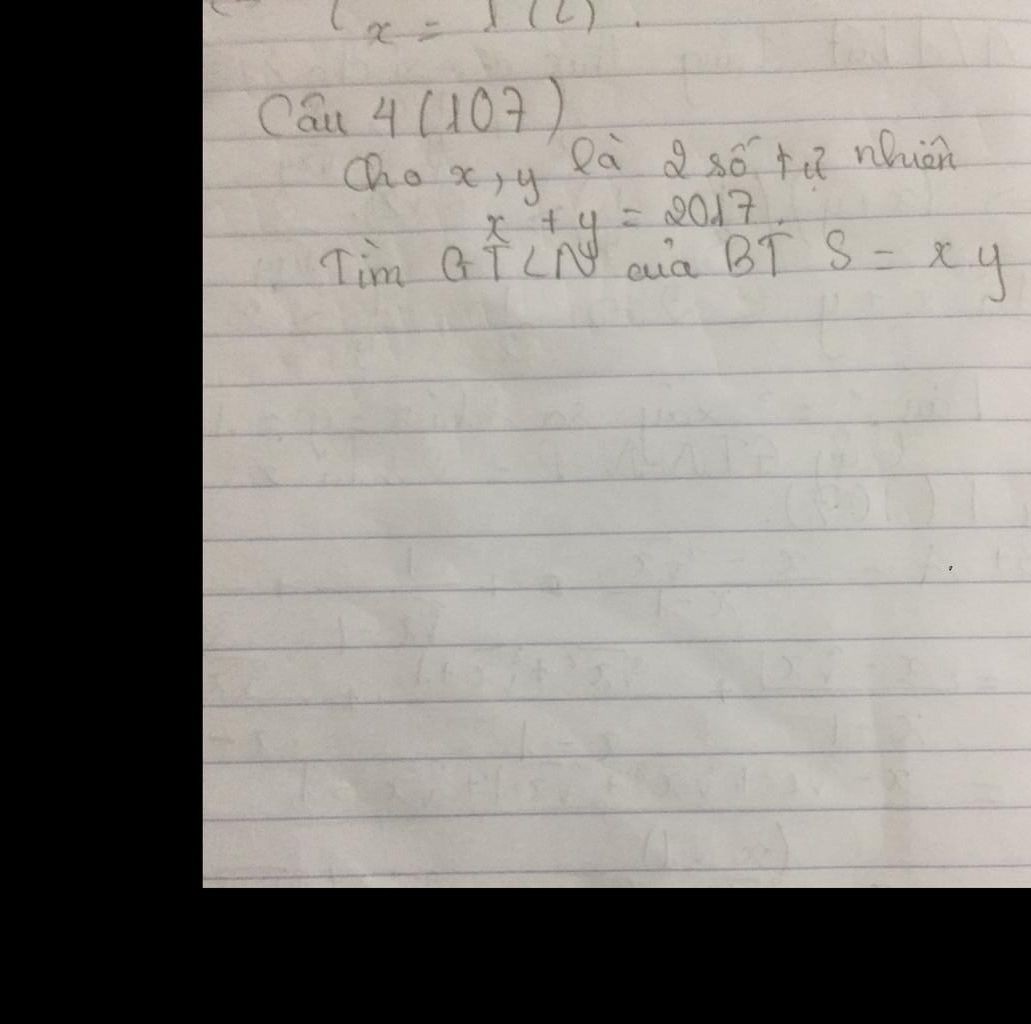 x = 1 (L).
Câu 4 (107)
Cho x, y là 2 số tự nhiên
x + y = 2017.
Tìm GTLN của BT S = xy